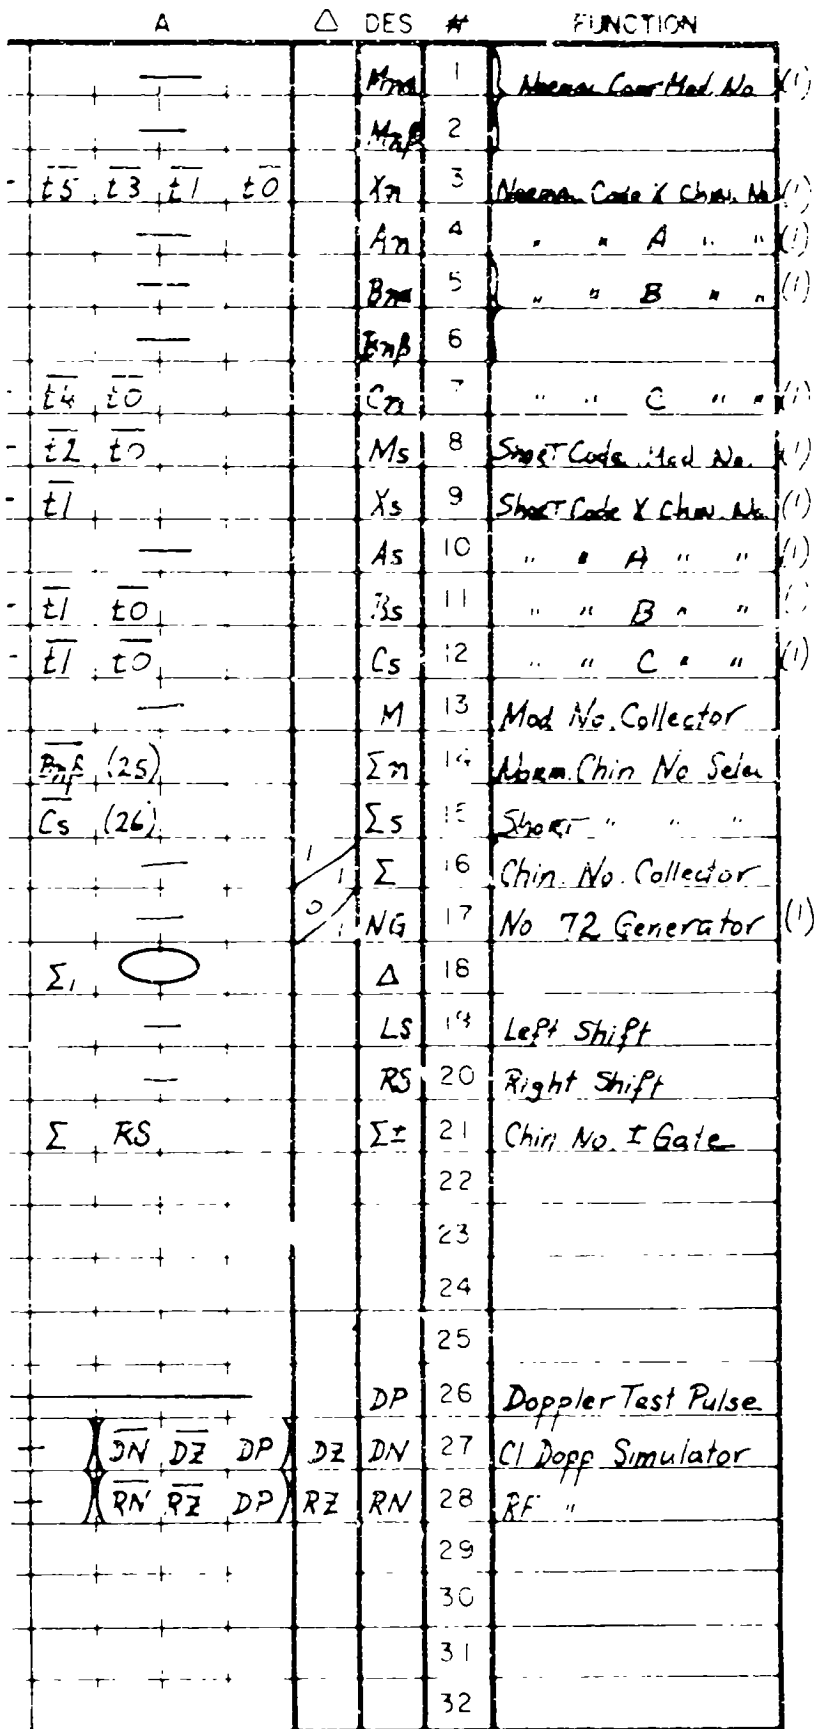 A △ DES # FUNCTION
— Mnα 1 Normal Code Mod. No (1)
— Mnβ 2
t̅5̅ t̅3̅ t̅1̅ t̅0̅ Xn 3 Normal Code X Chin. No (1)
— An 4 " " A " " (1)
— Bnα 5 " " B " " (1)
— Bnβ 6
t̅4̅ t̅0̅ Cn 7 " " C " " (1)
t̅2̅ t̅0̅ Ms 8 Short Code Mod No. (1)
t̅1̅ Xs 9 Short Code X Chin. No. (1)
— As 10 " " A " " (1)
t̅1̅ t̅0̅ Bs 11 " " B " "
t̅1̅ t̅0̅ Cs 12 " " C " " (1)
— M 13 Mod No. Collector
(25) Σn 14 Norm. Chin No Selec
C̅s̅ (26) Σs 15 Short " " "
— 1 1 Σ 16 Chin. No. Collector
— 0 1 NG 17 No 72 Generator (1)
Σ₁ Δ 18
— LS 19 Left Shift
— RS 20 Right Shift
Σ RS Σ± 21 Chin No. ± Gate
22
23
24
25
— DP 26 Doppler Test Pulse
(D̅N̅ D̅Z̅ DP) DZ DN 27 Cl Dopp Simulator
(R̅N̅ R̅Z̅ DP) RZ RN 28 RF "
29
30
31
32